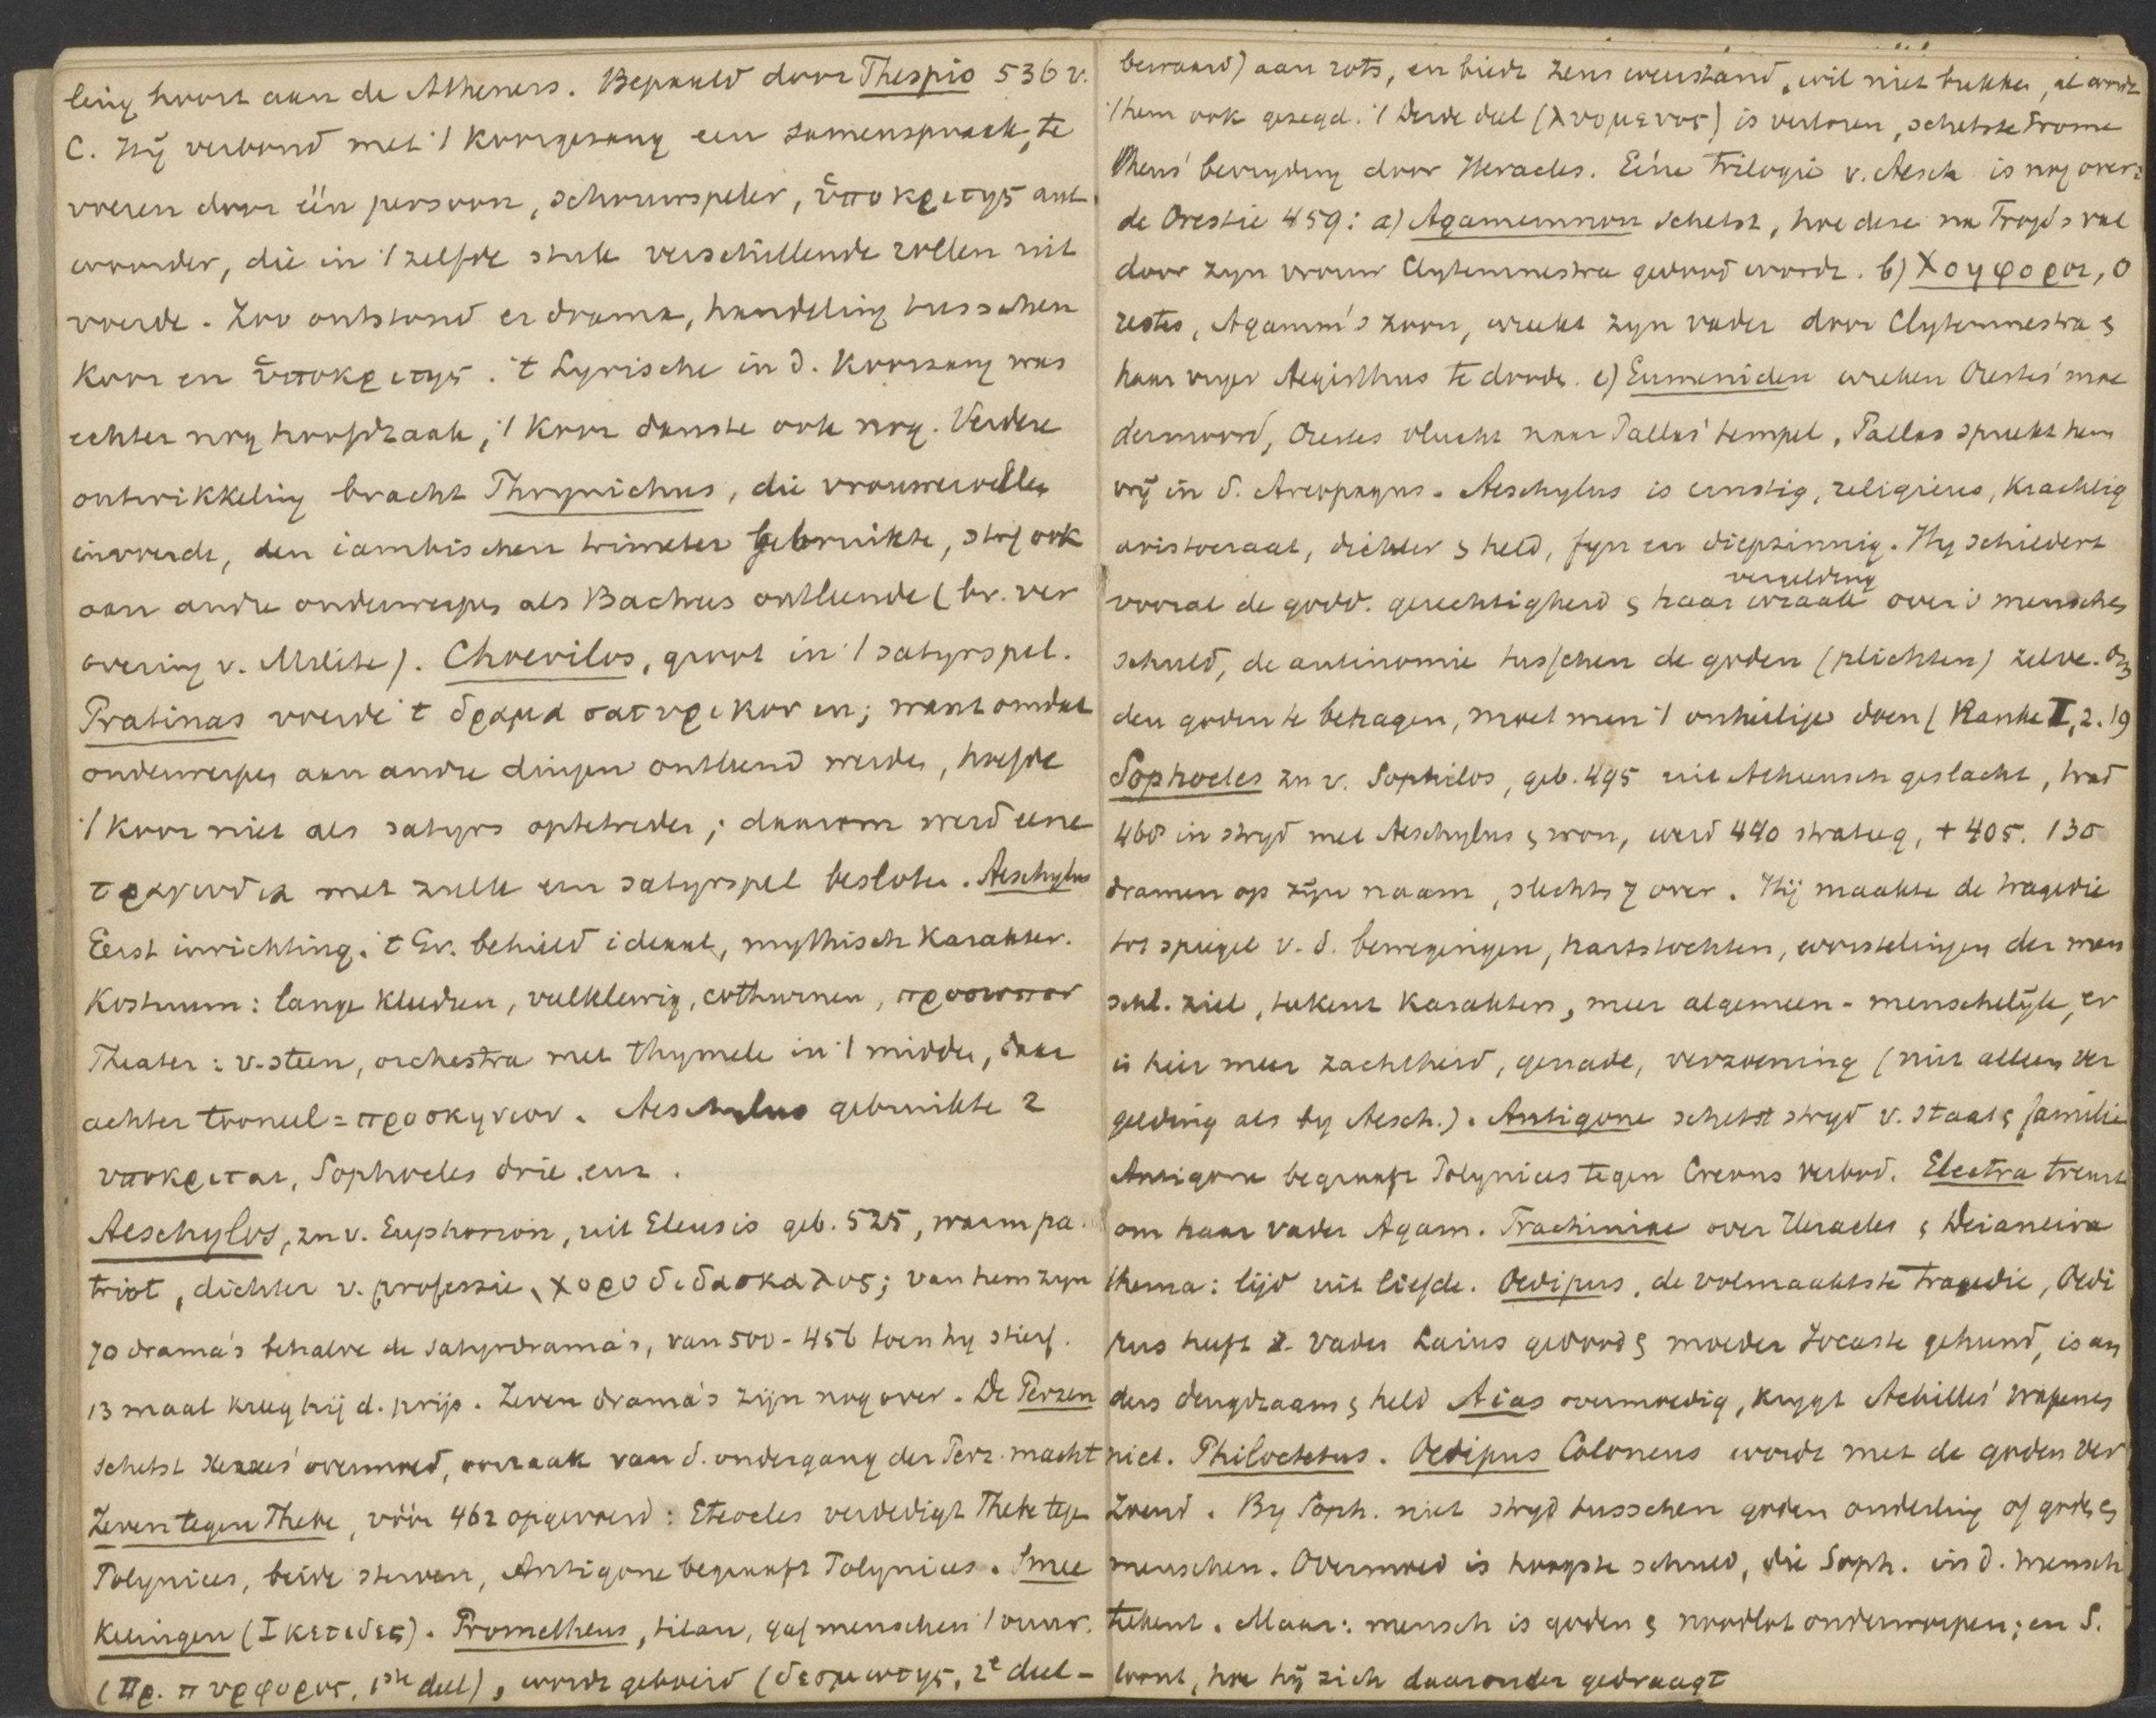 ling hoort aan de Atheners. Bepaald door Thespis 536 v.
C. Hij verbond met 't koorgezang een samenspraak, te
voeren door één persoon, schouwspeler, ὑποκριτης ant
woorder, die in 't zelfde stuk verschillende rollen uit
voerde. Zoo ontstond er drama, handeling tusschen
koor en ὑποκριτης. 't Lyrische in d. koorzang was
echter nog hoofdzaak, 't koor danste ook nog. Verdere
ontwikkeling bracht Phrynichus, die vrouwerollen
invoerde, den iambischen trimeter gebruikte, stof ook
aan andre onderwerpen als Bachus ontleende (bv. ver
overing v. Milete). Choerilos, groot in 't satyrspel.
Pratinas voerde 't δραμα σατυρικον in; want omdat
onderwerpen aan andre dingen ontleend werden, hoefde
't koor niet als satyrs optetreden; daarom werd eene
τραγωδια met zulk een satyrspel besloten. Aeschylus
Eerst inrichting. 't Gr. behield ideaal, mythisch karakter.
Kostuum: lange kleeren, veelkleurig, cothurnen, προσωπον
Theater: v. steen, orchestra met thymele in 't midden, daar
achter tooneel = προσκηνιον. Aeschylus gebruikte 2
υποκριται, Sophocles drie enz.
Aeschylos, zn v. Euphorion, uit Eleusis geb. 525, warm pa
triot, dichter v. professie, χοροδιδασκαλος; van hem zyn
70 drama's behalve de satyrdrama's, van 500-456 toen hy stierf.
13 maal kreeg hij d. prijs. Zeven drama's zijn nog over. De Perzen
schetst Xerxes' overmoed, oorzaak van d. ondergang der Perz. macht
Zeven tegen Thebe, vóór 462 opgevoerd: Eteocles verdedigt Thebe tegen
Polynices, beide sterven, Antigone begraaft Polynices. Smee
kelingen (Ικετιδες). Prometheus, titan, gaf menschen 't vuur.
(Πρ. πυρφορος, 1ste deel), wordt geboeid (δεσμωτης, 2e deel -
bewaard) aan rots, en biedt Zeus weerstand, wil niet bukken, al wordt
't hem ook gezegd. 't Derde deel (λυομενος) is verloren, schetste Prome
theus' bevryding door Heracles. Eéne trilogie v. Aesch is nog over:
de Orestie 459: a) Agamemnon schetst, hoe deze na Troje's val
door zyn vrouw Clytemnestra gedood wordt. b) Χοηφοροι, O
restes, Agamm's zoon, wreekt zyn vader door Clytemnestra &
haar vryer Aegisthus te dooden. c) Eumeniden wreken Orestes' moe
dermoord, Orestes vlucht naar Pallas' tempel, Pallas spreekt hem
vrij in d. Areopagus. Aeschylus is ernstig, religieus, krachtig
aristocraat, dichter & held, fyn en diepzinnig. Hy schildert
vooral de godd. gerechtigheid & haar wraak vergelding over 's menschen
schuld, de antinomie tusschen de goden (plichten) zelve. Om
den goden te behagen, moet men 't onheilige doen (Ranke I, 2. 19
Sophocles zn v. Sophilos, geb. 495 uit Atheensch geslacht, trad
468 in stryd met Aeschylus & won, werd 440 strateeg, † 405. 130
dramen op zijn naam, slechts 7 over. Hij maakte de tragedie
tot spiegel v. d. bewegingen, hartstochten, worstelingen der men
schl. ziel, tekent karakters, meer algemeen-menschelijk, er
is hier meer zachtheid, genade, verzoening (niet alleen ver
gelding als by Aesch.). Antigone schetst stryd v. staat & familie
Antigone begraaft Polynices tegen Creons verbod. Electra treurt
om haar vader Agam. Trachiniae over Heracles & Deianeira
thema: lijd uit liefde. Oedipus, de volmaaktste tragedie, Oedi
pus heeft z. vader Laius gedood & moeder Jocaste gehuwd, is an
ders deugdzaam & held Aias overmoedig, krygt Achilles' wapenen
niet. Philoctetus. Oedipus Coloneus wordt met de goden ver
zoend. By Soph. niet stryd tusschen goden onderling of goden &
menschen. Overmoed is hoogste schuld, die Soph. in d. mensch
tekent. Maar: mensch is goden & noodlot onderworpen; en S.
toont, hoe hij zich daaronder gedraagt